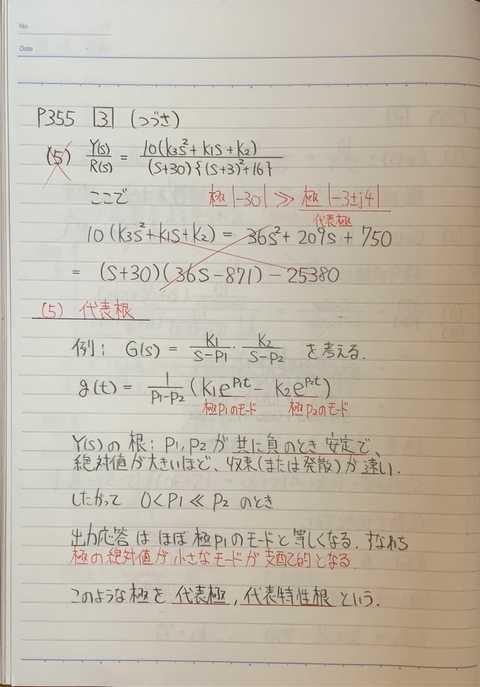 No.
Date
P355 [3] (つづき)
(5) Y(s)/R(s) = 10(k₃s²+k₁s+k₂)/(s+30){(s+3)²+16}
ここで 極|-30| ≫ 極|-3±j4|
代表極
10(k₃s²+k₁s+k₂) = 36s²+209s+750
= (s+30)(36s-871)-25380
(5) 代表根
例: G(s) = K₁/s-P₁ · K₂/s-P₂ を考える.
g(t) = 1/P₁-P₂ (K₁e^P₁t - K₂e^P₂t)
極P₁のモード 極P₂のモード
Y(s)の根: P₁,P₂が共に負のとき安定で、
絶対値が大きいほど、収束(または発散)が速い.
したがって 0<P₁≪P₂のとき
出力応答はほぼ極P₁のモードと等しくなる. すなわち
極の絶対値が小さなモードが支配的となる.
このような極を代表極, 代表特性根という.